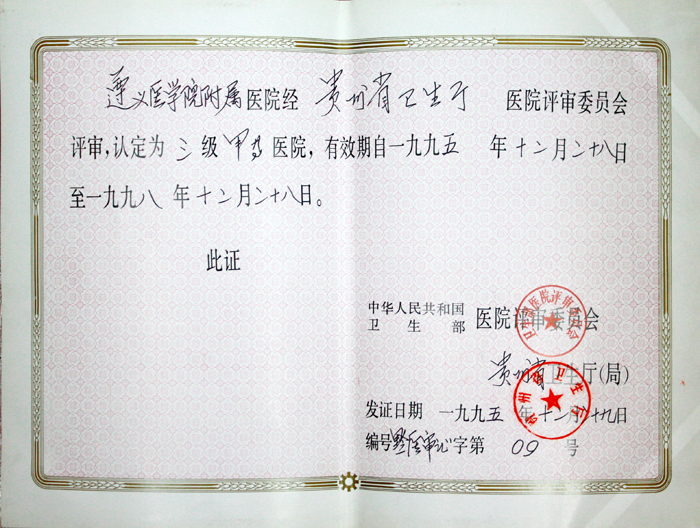 遵义医学院附属医院经 贵州省卫生厅 医院评审委员会
评审，认定为 三 级 甲等 医院，有效期自一九九五 年十二月二十八日
至一九九八 年十二月二十八日。
此证
中华人民共和国
卫生部 医院评审委员会
贵州省卫生厅(局)
发证日期 一九九五年十二月二十九日
编号黔医审 字第 09 号